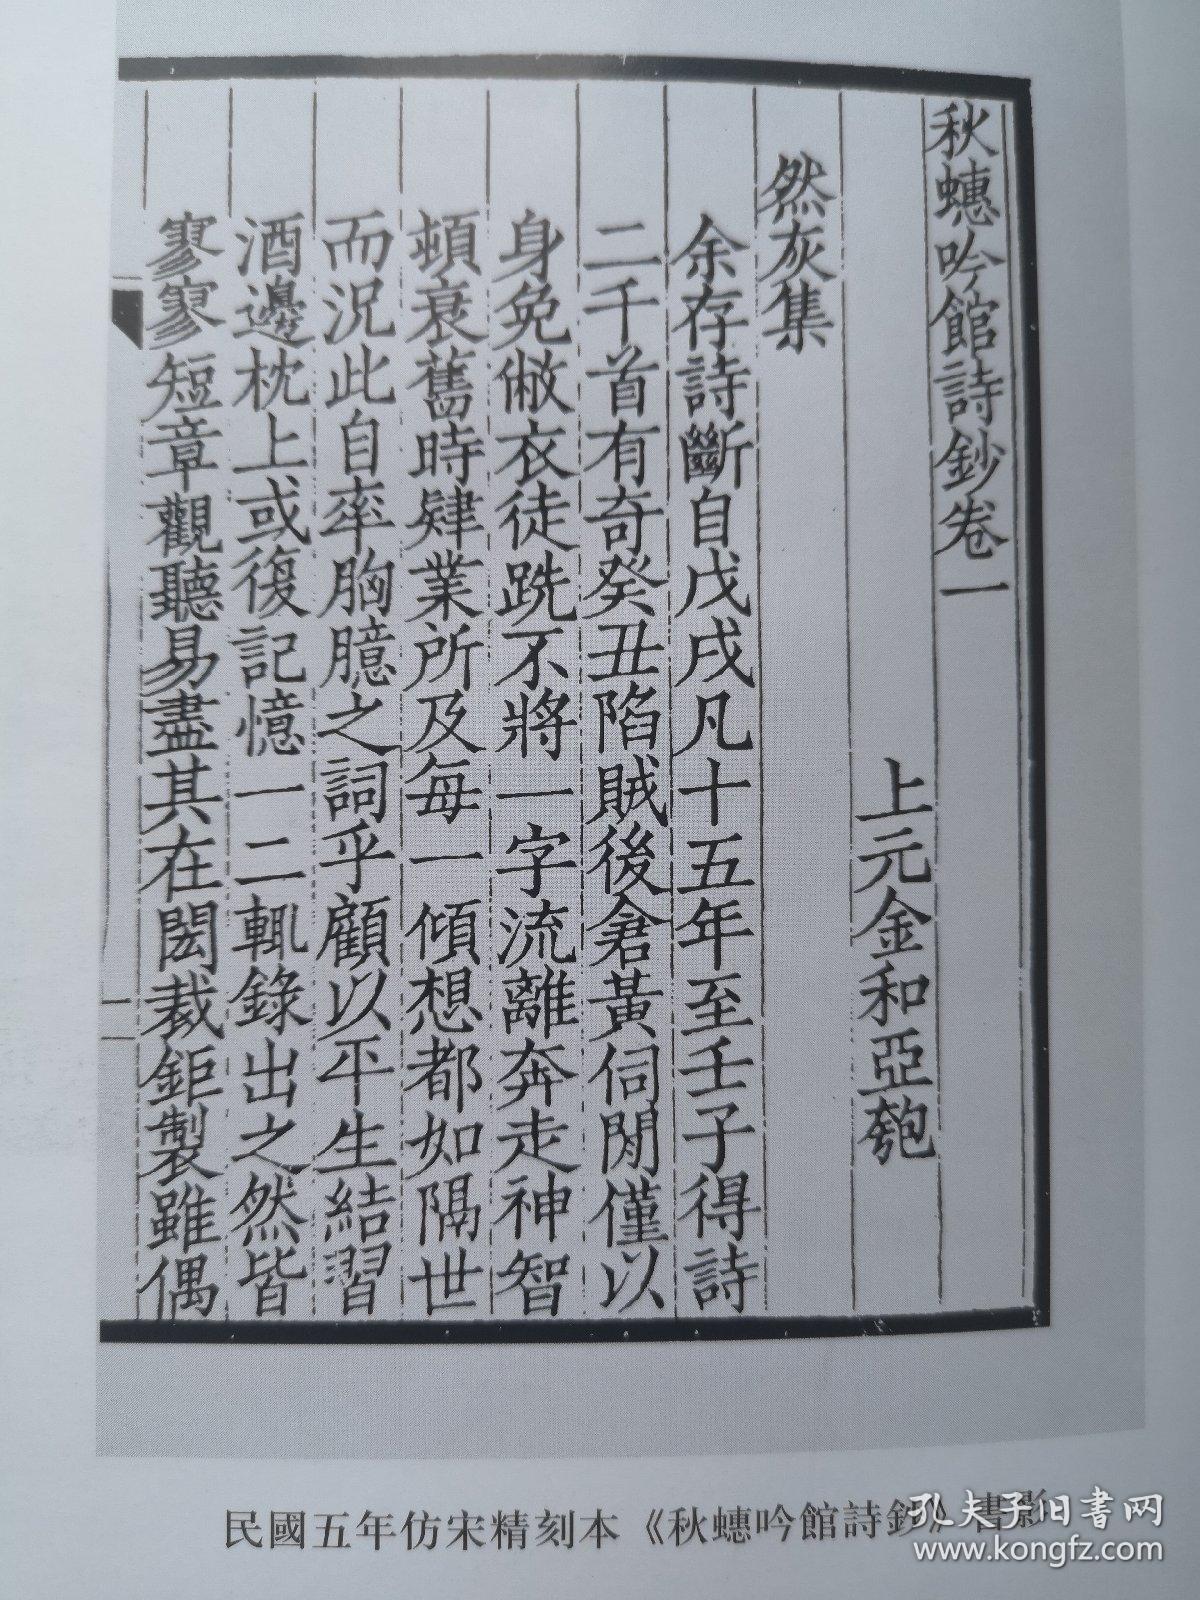 秋蟪吟館詩鈔卷一
上元金和亞匏
然灰集
余存詩斷自戊戌凡十五年至壬子得詩
二千首有奇癸丑陷賊後倉黃伺閒僅以
身免敝衣徒跣不將一字流離奔走神智
頓衰舊時肄業所及每一傾想都如隔世
而況此自率胸臆之詞乎顧以平生結習
酒邊枕上或復記憶一二輒錄出之然皆
寥寥短章觀聽易盡其在閎裁鉅製雖偶
民國五年仿宋精刻本《秋蟪吟館詩鈔》書影
孔夫子旧书网
www.kongfz.com